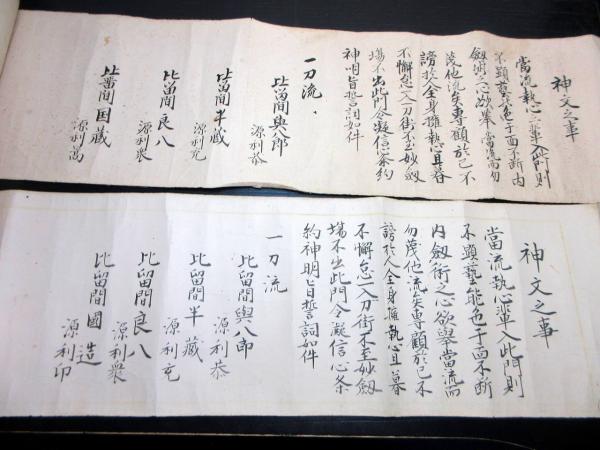 神文之事
當流執心之輩入此門則
不顕藝能色子面不断内
劔術之心欲挙當流而勿
蔑他流矣専顧於己不
謗於人全身擁執心且暮
不懈怠入刀街不至妙劔
場不出此門令凝信心条約
神明旨誓詞如件
一刀流
比留間與八郎
源利恭
比留間半蔵
源利充
比留間良八
源利衆
比留間国蔵
源利
神文之事
當流執心輩入此門則
不顕藝能色子面不断
内劔術之心欲挙當流而
勿蔑他流矣専顧於己不
謗於人全身擁執心且暮
不懈怠入刀街不至妙劔
場不出此門令凝信心条
約神明旨誓詞如件
一刀流
比留間與八郎
源利恭
比留間半蔵
源利充
比留間良八
源利衆
比留間國造
源利印